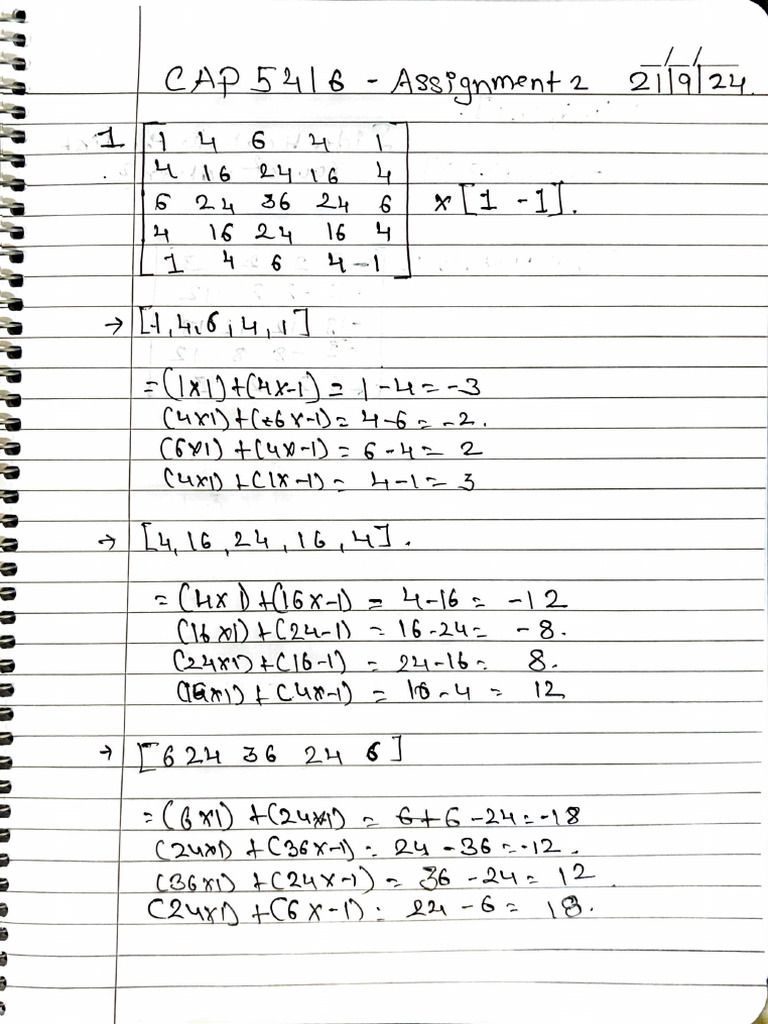 CAP 5416 - Assignment 2 21/9/24
1 [1 4 6 4 1
4 16 24 16 4
6 24 36 24 6
4 16 24 16 4
1 4 6 4 -1] * [1 -1].
→ [1,4,6,4,1]
=(1x1)+(4x-1) = 1-4 = -3
(4x1)+(-6x-1) = 4-6 = -2.
(6x1) + (4x-1) = 6-4 = 2
(4x1) + (1x-1) = 4-1 = 3
→ [4,16,24,16,4].
= (4x1)+(16x-1) = 4-16 = -12
(16x1)+(24-1) = 16-24 = -8.
(24x1)+(16-1) = 24-16 = 8.
(16x1) + (4x-1) = 16-4 = 12
→ [6 24 36 24 6]
= (6x1) + (24x1) = 6+6-24 = -18
(24x1) + (36x-1) = 24-36 = -12.
(36x1) + (24x-1) = 36-24 = 12
(24x1) + (6x-1) = 24-6 = 18.